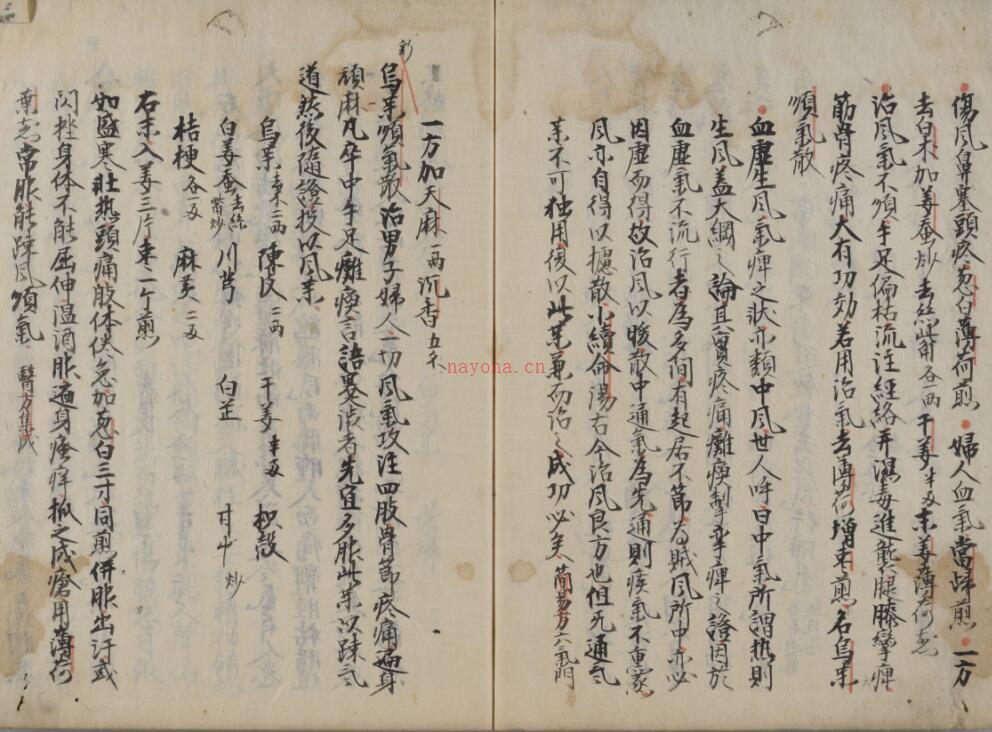 傷風鼻塞頭疼葱白薄荷煎 婦人血氣當帰煎 一方
去白朮加姜蚕炒去絲 各 両干姜半 末姜薄荷煎
治風氣不順手足偏枯流注經絡并濕毒進襲腿膝攣痺
筋骨疼痛大有功効若用治氣去薄荷増枣煎名烏薬
順氣散
血虚生風氣痺之状亦類中風世人呼曰中氣所謂热則
生風盖大綱之論且實疼痛癱瘓制牽痺之證因於
血虚氣不流行者為多間有起居不節為賊風所中亦必
因虚而得故治風以暖散中通氣為先通則疾氣不重家
風亦自得以攄散小續命湯古今治風良方也但无通氣
薬不可独用復以此薬兼而治之成功必矣 簡易方六氣門
一方加天麻一両沉香五
新
烏薬順氣散治男子婦人一切風氣攻注四肢骨節疼痛遍身
頑麻凡卒中手足癱瘓言語蹇渋者先宜多服此薬以疎氣
道然後随證投以風薬
烏薬去木二両 陳皮二両 干姜半 枳殻
白姜蚕去絲箒炒 川芎 白芷 甘草炒
桔梗各一 麻黄二
右末入姜三片枣一ケ煎
如盛寒壮热頭痛肢体倦怠加葱白三寸同煎併服出汗或
閃挫身体不能屈伸温酒服遍身瘙痒抓之成瘡用薄荷
煎常服能疎風順氣 醫方集成
nayona.cn